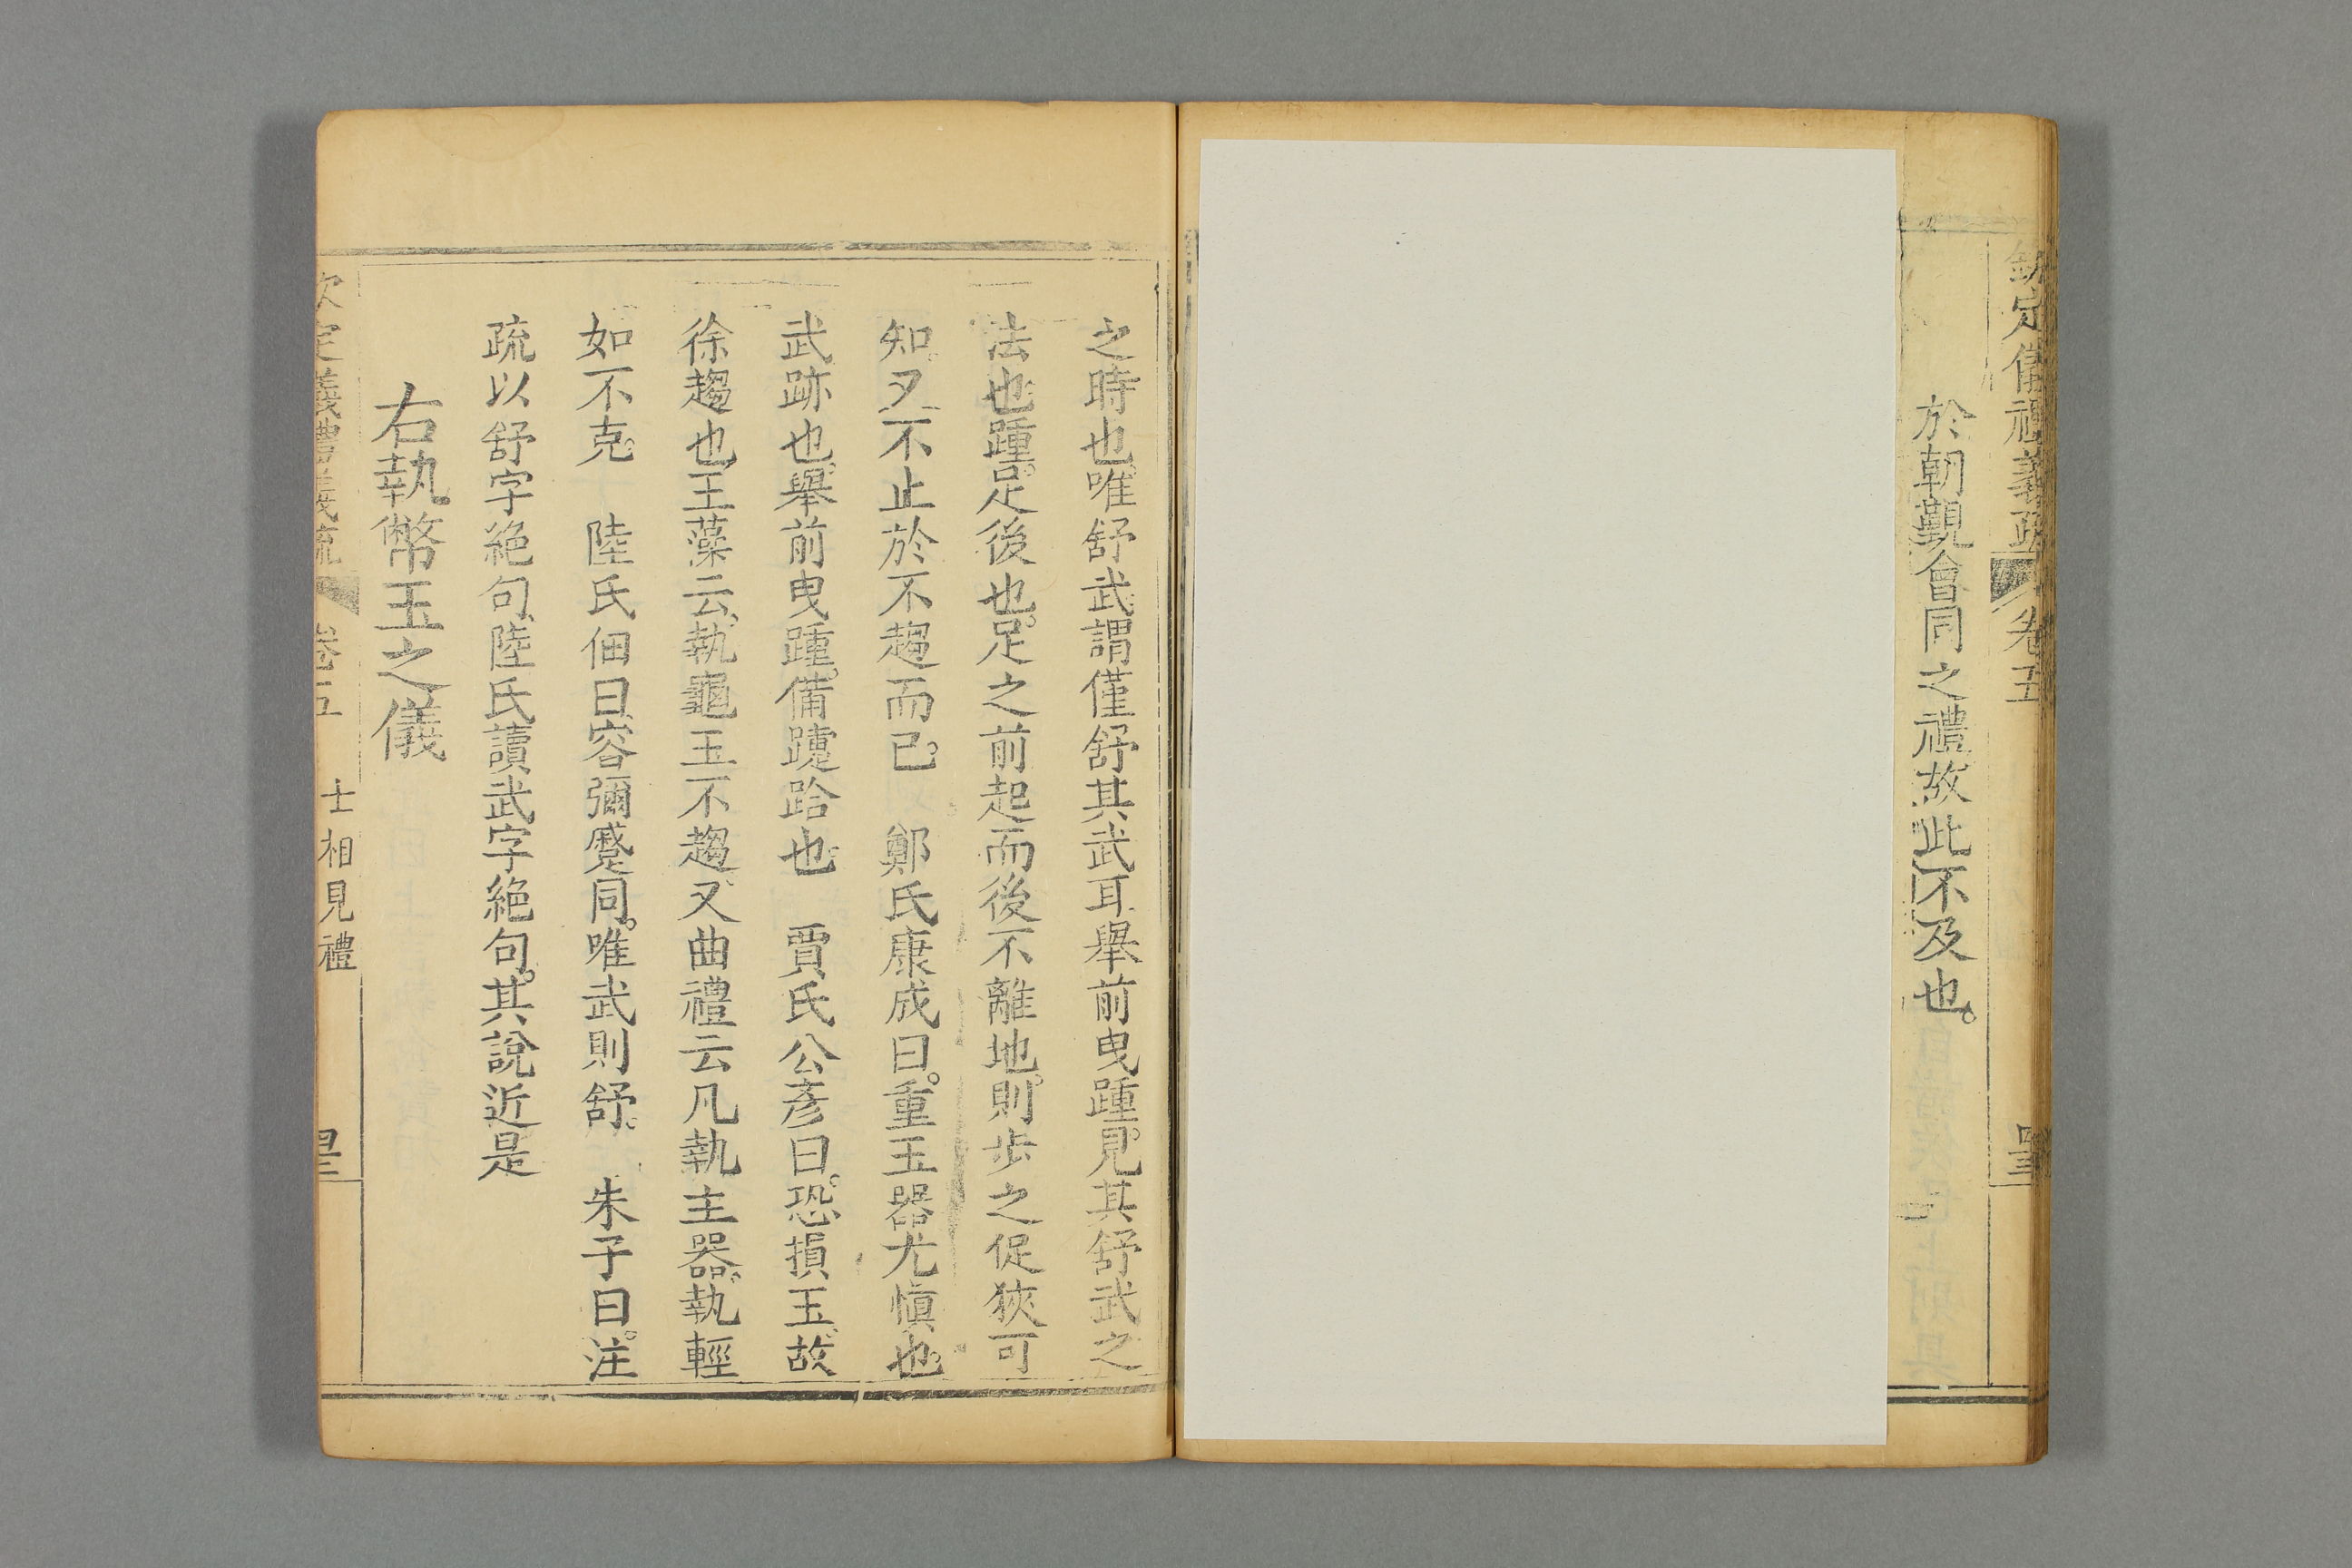 欽定儀禮義疏 卷五
於朝覲會同之禮故此不及也。
之時也唯舒武謂僅舒其武耳舉前曳踵見其舒武之
法也踵足後也足之前起而後不離地則步之促狹可
知又不止於不趨而已。 鄭氏康成曰重玉器尤愼也
武跡也舉前曳踵備躓跲也 賈氏公彥曰恐損玉故
徐趨也玉藻云執龜玉不趨又曲禮云凡執主器執輕
如不克。 陸氏佃曰容彌蹙同唯武則舒。 朱子曰注
疏以舒字絶句陸氏讀武字絶句。其說近是
右執幣玉之儀
欽定義禮義疏 卷五 士相見禮